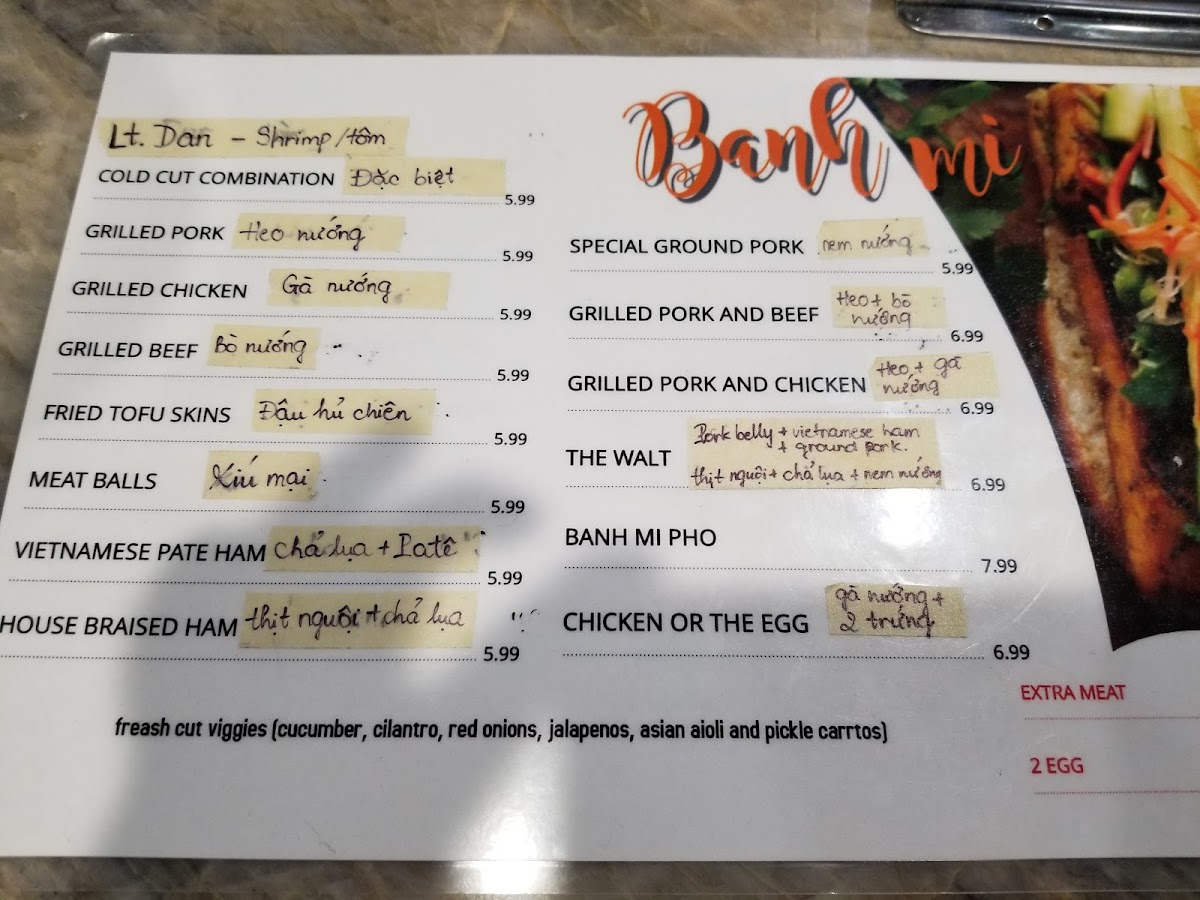 Banh mi
Lt. Dan - Shrimp/tôm
COLD CUT COMBINATION Đặc biệt
5.99
GRILLED PORK Heo nướng
5.99
GRILLED CHICKEN Gà nướng
5.99
GRILLED BEEF Bò nướng
5.99
FRIED TOFU SKINS Đậu hủ chiên
5.99
MEAT BALLS Xíu mại
5.99
VIETNAMESE PATE HAM chả lụa + Patê
5.99
HOUSE BRAISED HAM thịt nguội + chả lụa
5.99
SPECIAL GROUND PORK nem nướng
5.99
GRILLED PORK AND BEEF Heo + bò
nướng
6.99
GRILLED PORK AND CHICKEN Heo + gà
nướng
6.99
THE WALT Pork belly + vietnamese ham
+ ground pork.
thịt nguội + chả lụa + nem nướng
6.99
BANH MI PHO
7.99
CHICKEN OR THE EGG gà nướng +
2 trứng
6.99
EXTRA MEAT
2 EGG
freash cut viggies (cucumber, cilantro, red onions, jalapenos, asian aioli and pickle carrtos)